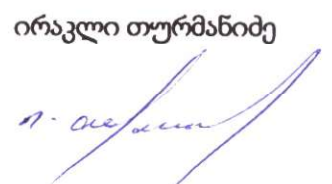 ირაკლი თურმანიძე